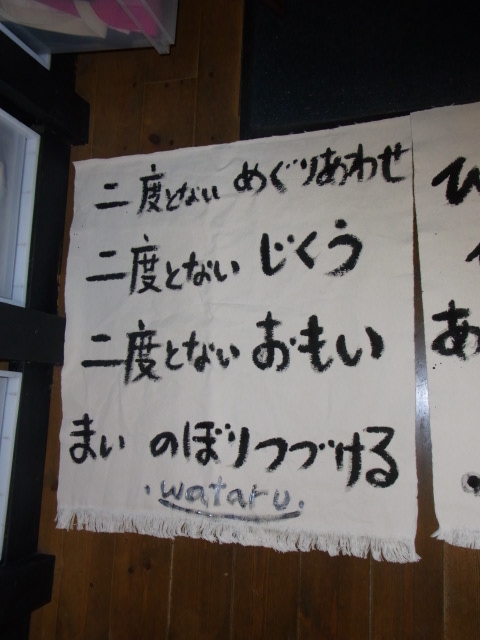 二度とない めぐりあわせ
二度とない じくう
二度とない おもい
まい のぼりつづける
.wataru.
あ